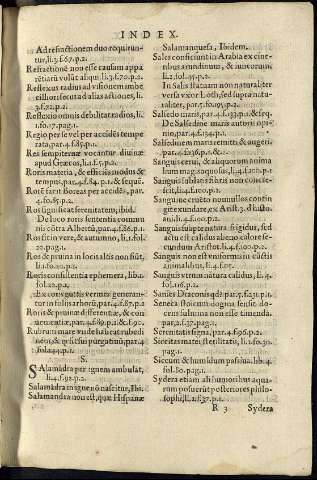 INDEX.
Ad refractionem duo requirun-
tur, li.3.f.67.p.2.
Refractionē non esse causam appa
rētiarū volūt aliqui.li.3.f.70.p.2.
Reflexus radius ad visionem
effi
cit, li.3.
p.2.
Reflexio omnis debilitat radios, li.
1.fo.17.pag.1.
Regio per se vel per accidēs tempe
rata, par.4.f.85.p.2.
Res sempiternæ vocentur diuinæ
apud Græcos, li.1.f.5.p.2.
Roris materia, & efficiēs modus &
tempus, par.4.f.84.p.1. & seque.
per accidēs, par.
4.fo.85.p.2.
Ros significat serenitatem, ibid.
De loco roris sententia commu-
nis cōtra Albertū, par.4.f.86.p.1.
Ros fit in vere, & autumno, li.1.fol.
20.pag.1.
Ros & pruina in locis altis non fiūt,
li.1.fo.20.p.2.
Roris consistentia ephemera, lib.1.
fol.20.p.2.
Ex
vermes generan-
tur in foliis arborū, par.4.f.87.p.2.
Roris & pruinæ differentiæ, & con
uenientiæ, par.4.f.90.p.2.
Rubrum mare
pag.1.
S.
SAlamādra per ignem ambulat,
li.4.f.92.p.2.
Salamādra in igne nō nascitur, Ibi.
Salamandra non est, quæ Hispanæ
Salamanquesa, Ibidem.
Sales conficiuntur in Arabia ex cine-
ribus arundinum, & iuncorum.
li.2.fol.45.p.2.
In Salis statuam non naturaliter
versa vxor Loth, sed supra natu-
raliter, par.5.fo.95.p.2.
Salsedo maris, par.4.f.133.p.1. & seq.
De Salsedine maris autoris opi-
nio, par.4.f.134.p.1.
Salsedinem maris remitti & augeri,
par.4.f.136.p.1.&
Sanguis cerui, & aliquorum anima
lium magis aqueus, li.4.fol.103.p.1
Sanguis sublatis fibris non concre-
scit, li.4.f.100.p.2.
Sanguine crueto nonnullos contin
git exundare, ex Arist.3.
ani.li.4.f.100.p.2.
Sanguis suapte natura frigidus, sed
actu est calidus alieno calore se-
cundum Aristot.li.4.f.100.p.2.
Sanguis non est vniformis in cūctis
animalibus, li.4.f.
Sanguis verius natura calidus, li.4.
fo.100.p.2.
Sanies Draconis
par.7.
p.1.
Seneca
dogma
sensus, de
cens
non esse timenda.
par.2.f.37.pag.1.
Serenitatis signa, par.4.f.96.p.2.
Siccitas mater sterilitatis, li.1.fo.30.
pag.1.
Siccum & humidum passiua, lib.4.
fol.80.pag.1.
Sydera etiam ab humoribus aqua-
rum posuerūt posteriores philo-
sophi, li.2.f.37.p.1.
R 3 Sydera